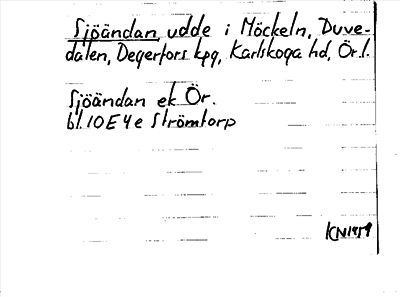 Sjöändan, udde i Möckeln, Duve-
dalen, Degerfors kpg, Karlskoga hd, Ör.l.
Sjöändan ek Ör.
bl. 10E4e Strömtorp
KN1959